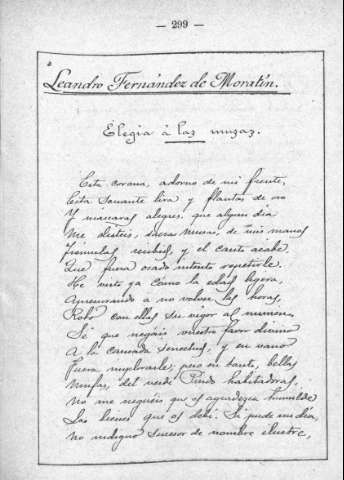 — 299 —
Leandro Fernández de Moratín.
Elegia á las musas.
Esta corona, adorno de mi frente,
Esta sonante lira y flautas de oro
Y máscaras alegres, que algun dia
Me disteis, sacras musas, de mis manos
Trémulas recibid, y el canto acabe,
Que fuera osado intento repetirle.
He visto ya como la edad ligera,
Apresurando á no volver las horas,
Robó con ellas su vigor al numen.
Sé que negáis vuestro favor divino
A la cansada senectud, y en vano
Fuera implorarle; pero en tanto, bellas
Ninfas, del verde Pindo habitadoras,
No me neguéis que os agradezca humilde
Los bienes que os debí. Si pude un dia,
No indigno sucesor de nombre ilustre,